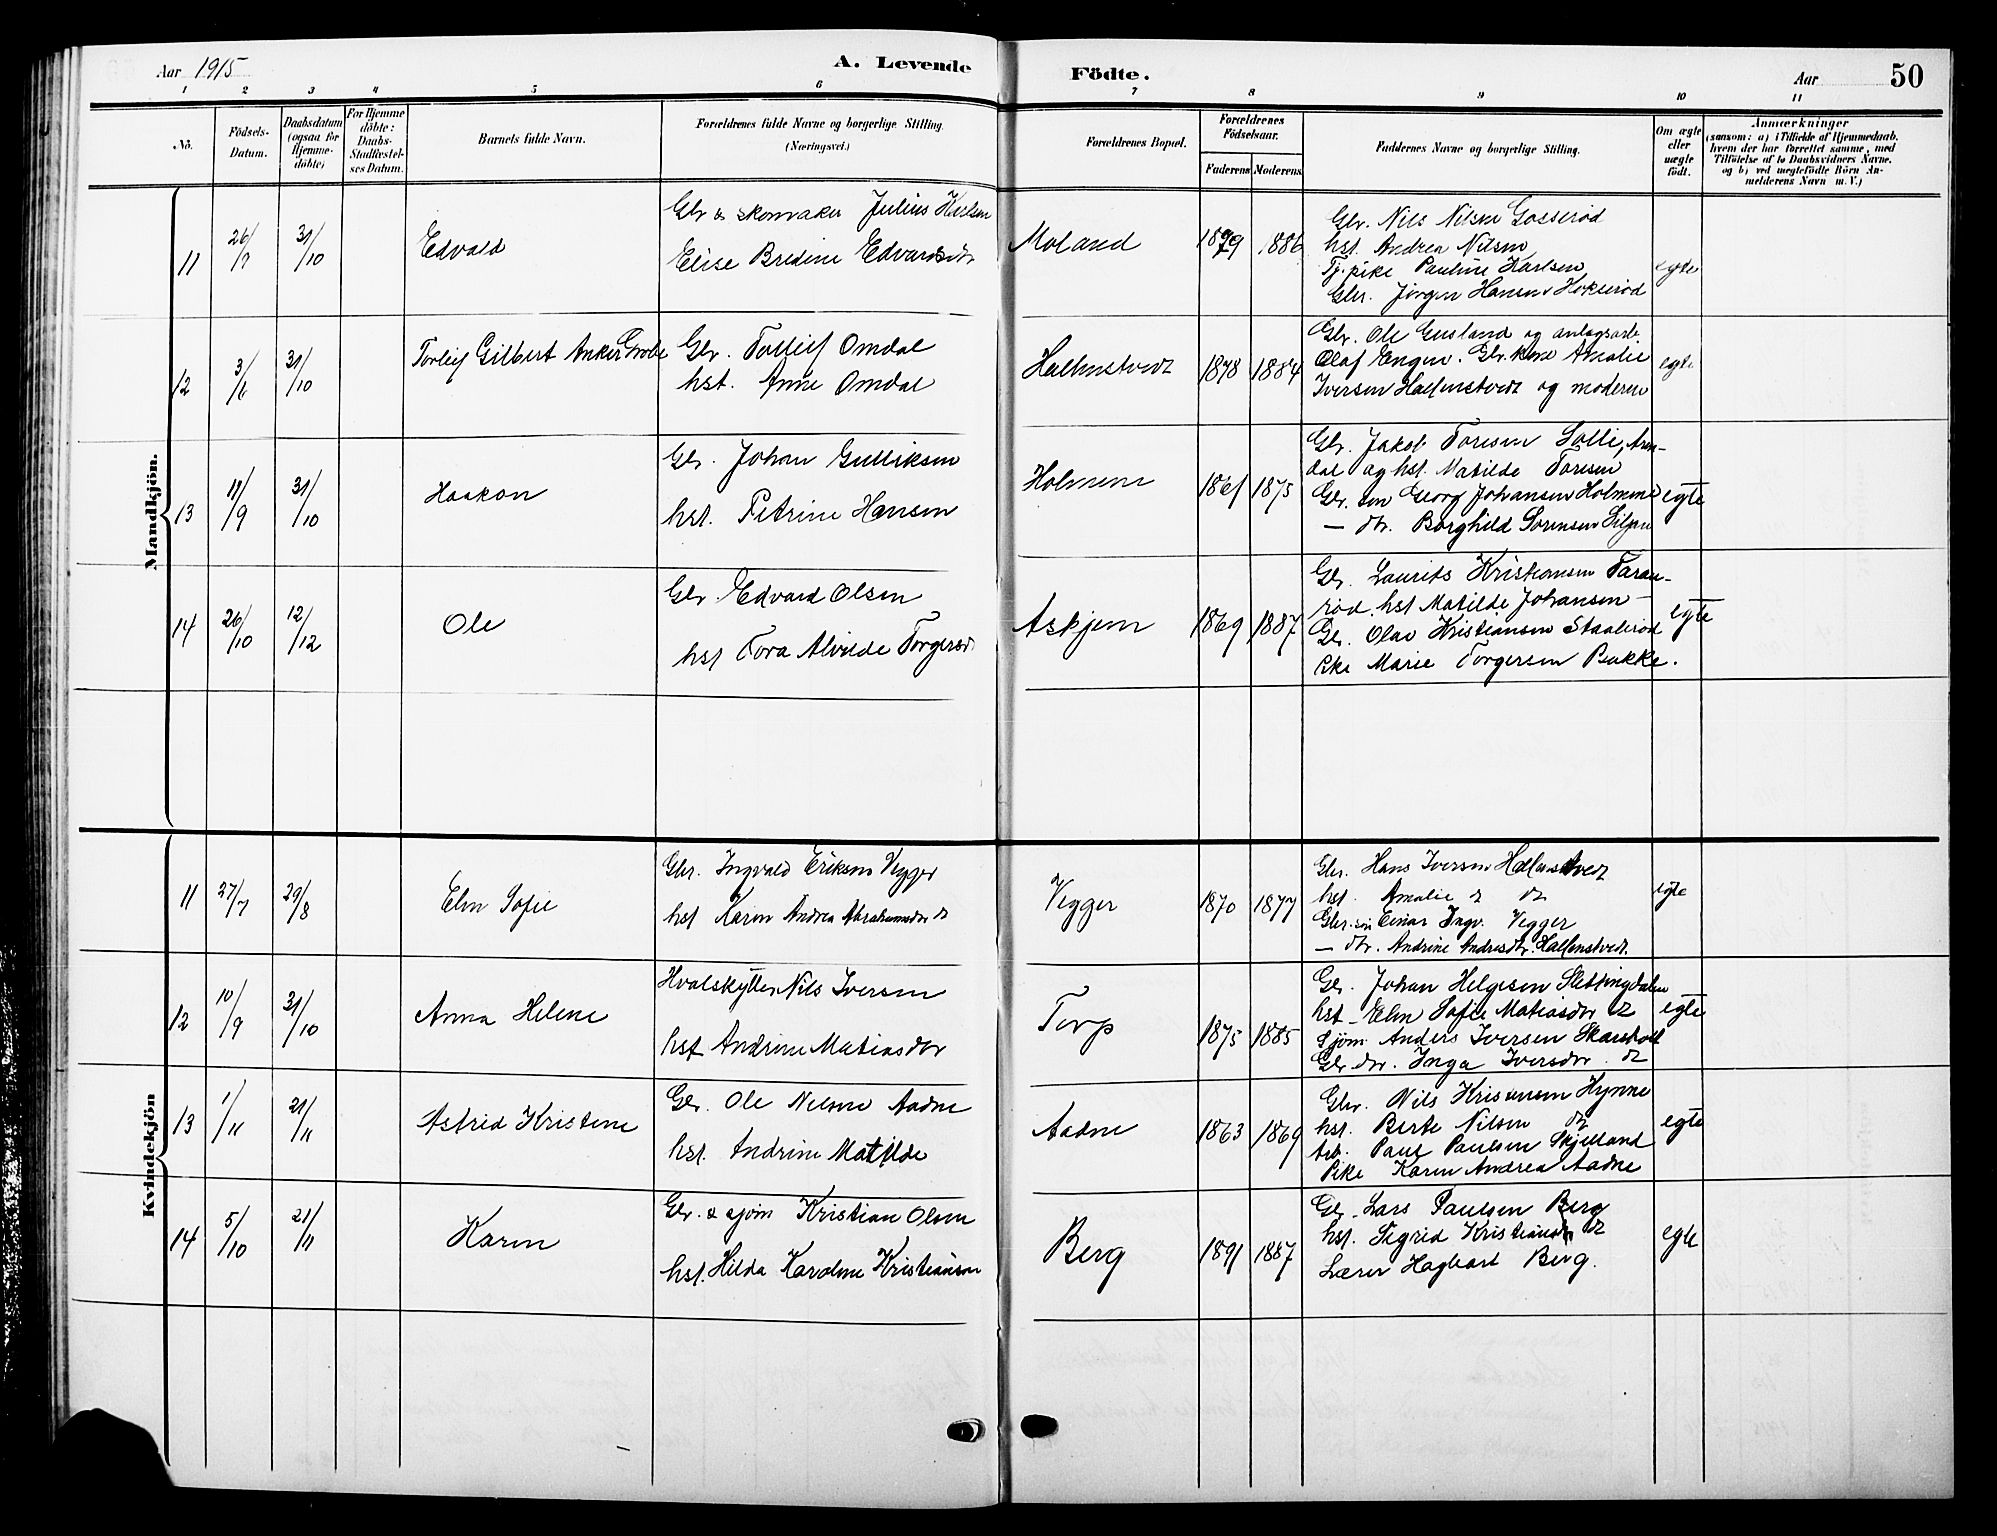 Aar 1915
A. Levende
Födte.
Aar
50
1 2 3 4 5 6 7 8 9 10 11
No.
Födsels-
Datum.
Daabsdatum
(ogsaa for
Hjemme-
döbte)
For Hjemme
döbte:
Daabs-
Stadfæstel-
ses Datum.
Barnets fulde Navn.
Forældrenes fulde Navne og borgerlige Stilling.
(Næringsvei.)
Forældrenes Bopæl.
Forældrenes
Födselsaar.
Faderens
Moderens
Faddernes Navne og borgerlige Stilling.
Om ægte
eller
uægte
födt.
Anmærkninger
(saasom: a) i Tilfælde af Hjemmedaab,
hvem der har forrettet samme, med
Tilföielse af to Daabsvidners Navne.
og b) ved uægtefödte Börn An-
melderens Navn m. V.)
Mandkjön.
11
26/7
31/10
Edvald
Gbr & skomaker Julius Karlsen
Elise Bredine Edvardsdr
Moland
1879
1886
Gbr. Nils Nilsen Gosserød
hst. Andrea Nilsen
Tj.pike Pauline Karlsen
Gbr. Jørgen Hansen Hokserød
egte
12
3/6
31/10
Torleif Gilbert Anker Grobe
Gbr. Tolleif Omdal
hst. Anne Omdal
Hallenstvedt
1878
1884
Gbr. Ole Gusland og anlægsarb.
Olaf Engen. Gbr.kone Amalie
Iversen Hallenstvedt og moderen
egte
13
11/9
31/10
Haakon
Gbr. Johan Gulliksen
hst. Petrine Hansen
Holmene
1861
1875
Gbr. Jakob Toresen Solli, Aren-
dal og hst. Matilde Toresen
Gbr. søn Georg Johansen Holmene
— dtr. Borghild Sørensen Siljan
egte
14
26/10
12/12
Ole
Gbr Edvard Olsen
hst Tora Alvilde Torgersdr
Askjem
1869
1887
Gbr. Laurits Kristiansen Taran-
rød. hst Matilde Johansen —
Gbr. Olav Kristiansen Staalerød
Pike Marie Torgersen Bakke.
egte
Kvindekjön
11
27/7
29/8
Elen Sofie
Gbr. Ingvald Eriksen Vegger
hst Karen Andrea Abrahamsdr do
Vegger
1870
1877
Gbr. Hans Iversen Hallenstvedt
hst. Amalie do do
Gbr. søn Einar Ingv. Vegger
— dtr. Andrine Andresdtr. Hallenstvedt.
egte
12
10/9
31/10
Anna Helene
Hvalskytter Nils Iversen
hst Andrine Matiasdtr
Torp
1875
1885
Gbr. Johan Helgesen Slettingdalen
hst - Elen Sofie Matiasdtr do
Sjöm Anders Iversen Skarsholt
Gbr dtr. Inga Iversdtr. do
egte
13
1/11
21/11
Astrid Kristine
Gbr. Ole Nilsen Aadne
hst. Andrine Matilde
Aadne
1863
1869
Gbr. Nils Kristensen Hynne
hst. Berte Nilsen do
Arb. Paul Paulsen Skjelland
Pike Karen Andrea Aadne
egte
14
5/10
21/11
Karen
Gbr. & sjöm Kristian Olsen
hst. Hilda Karoline Kristiansen
Berg
1891
1887
Gbr. Lars Paulsen Berg
hst. Sigrid Kristiansen do
Lærer Hagbart Berg.
egte